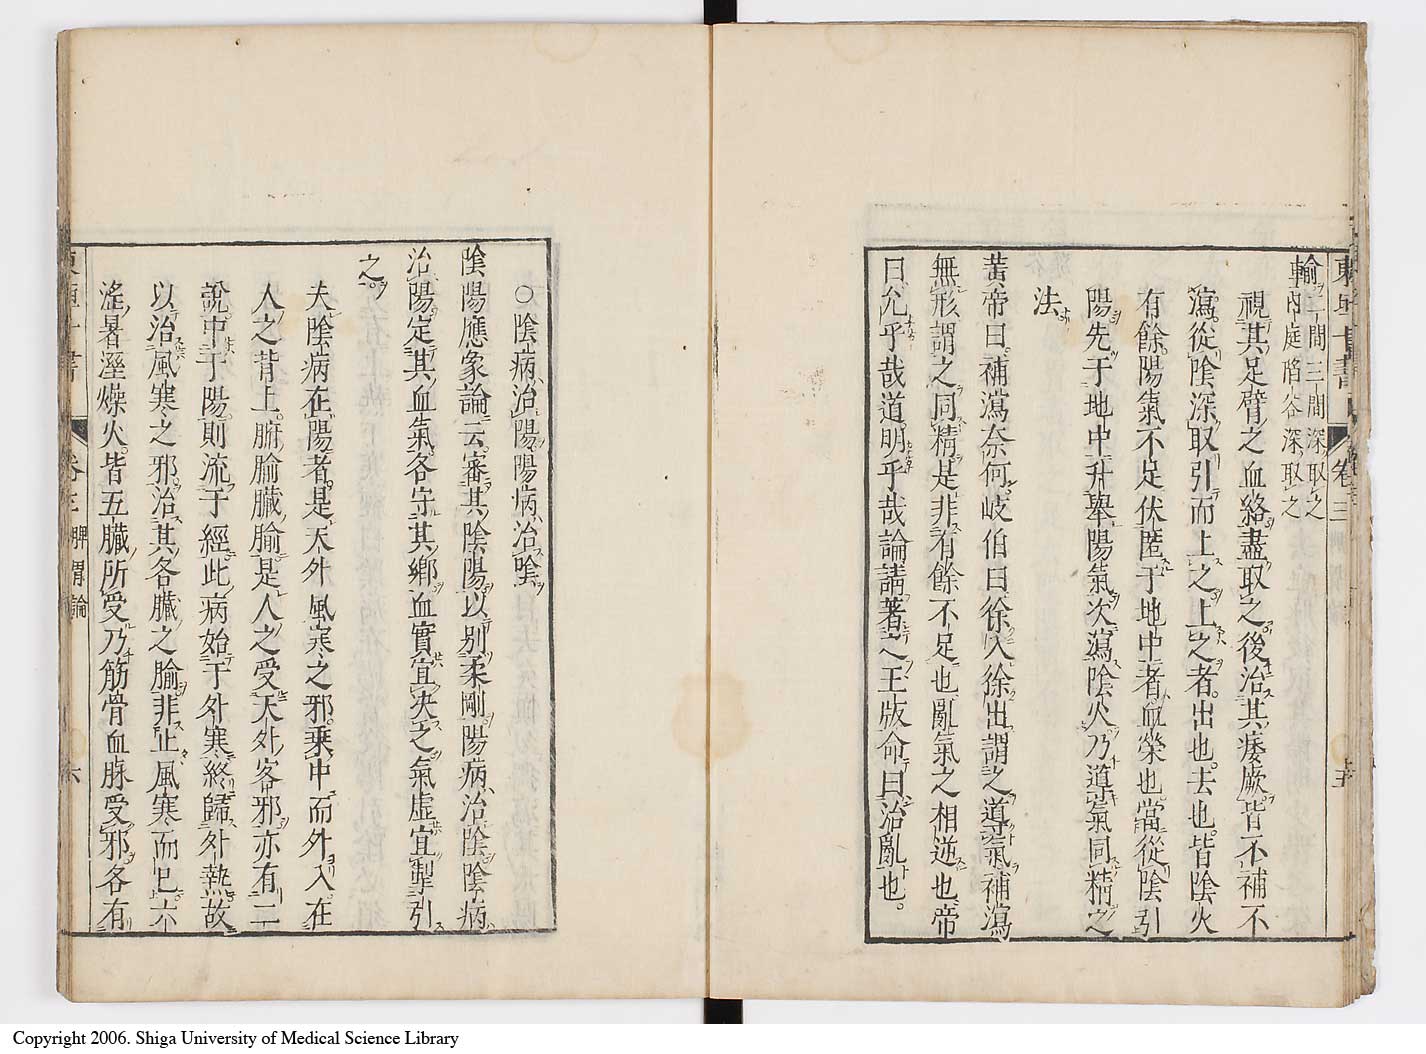 輸二間三間深取之
輸內庭陷谷深取之
視其足臂之血絡盡取之後治其痿厥皆不補不
瀉從陰深取引而上之上之者出也去也皆陰火
有餘陽氣不足伏匿于地中者血榮也當從陰引
陽先于地中升舉陽氣次瀉陰火乃道氣同精之
法
黃帝曰補瀉奈何岐伯曰徐入徐出謂之導氣補瀉
無形謂之同精是非有餘不足也亂氣之相逆也帝
曰允乎哉道明乎哉論請著之玉版命曰治亂也
東垣十書
卷三
○陰病治陽陽病治陰
陰陽應象論云審其陰陽以別柔剛陽病治陰陰病
治陽定其血氣各守其鄉血實宜決之氣虛宜掣引
之
夫陰病在陽者是天外風寒之邪乘中而外入在
人之背上腑腧臟腧是人之受天外客邪亦有二
說中于陽則流于經此病始于外寒終歸外熱故
以治風寒之邪治其各臟之腧非止風寒而已六
淫暑溼燥火皆五臟所受乃筋骨血脉受邪各有
東垣十書
卷三
脾胃論
六
Copyright 2006. Shiga University of Medical Science Library